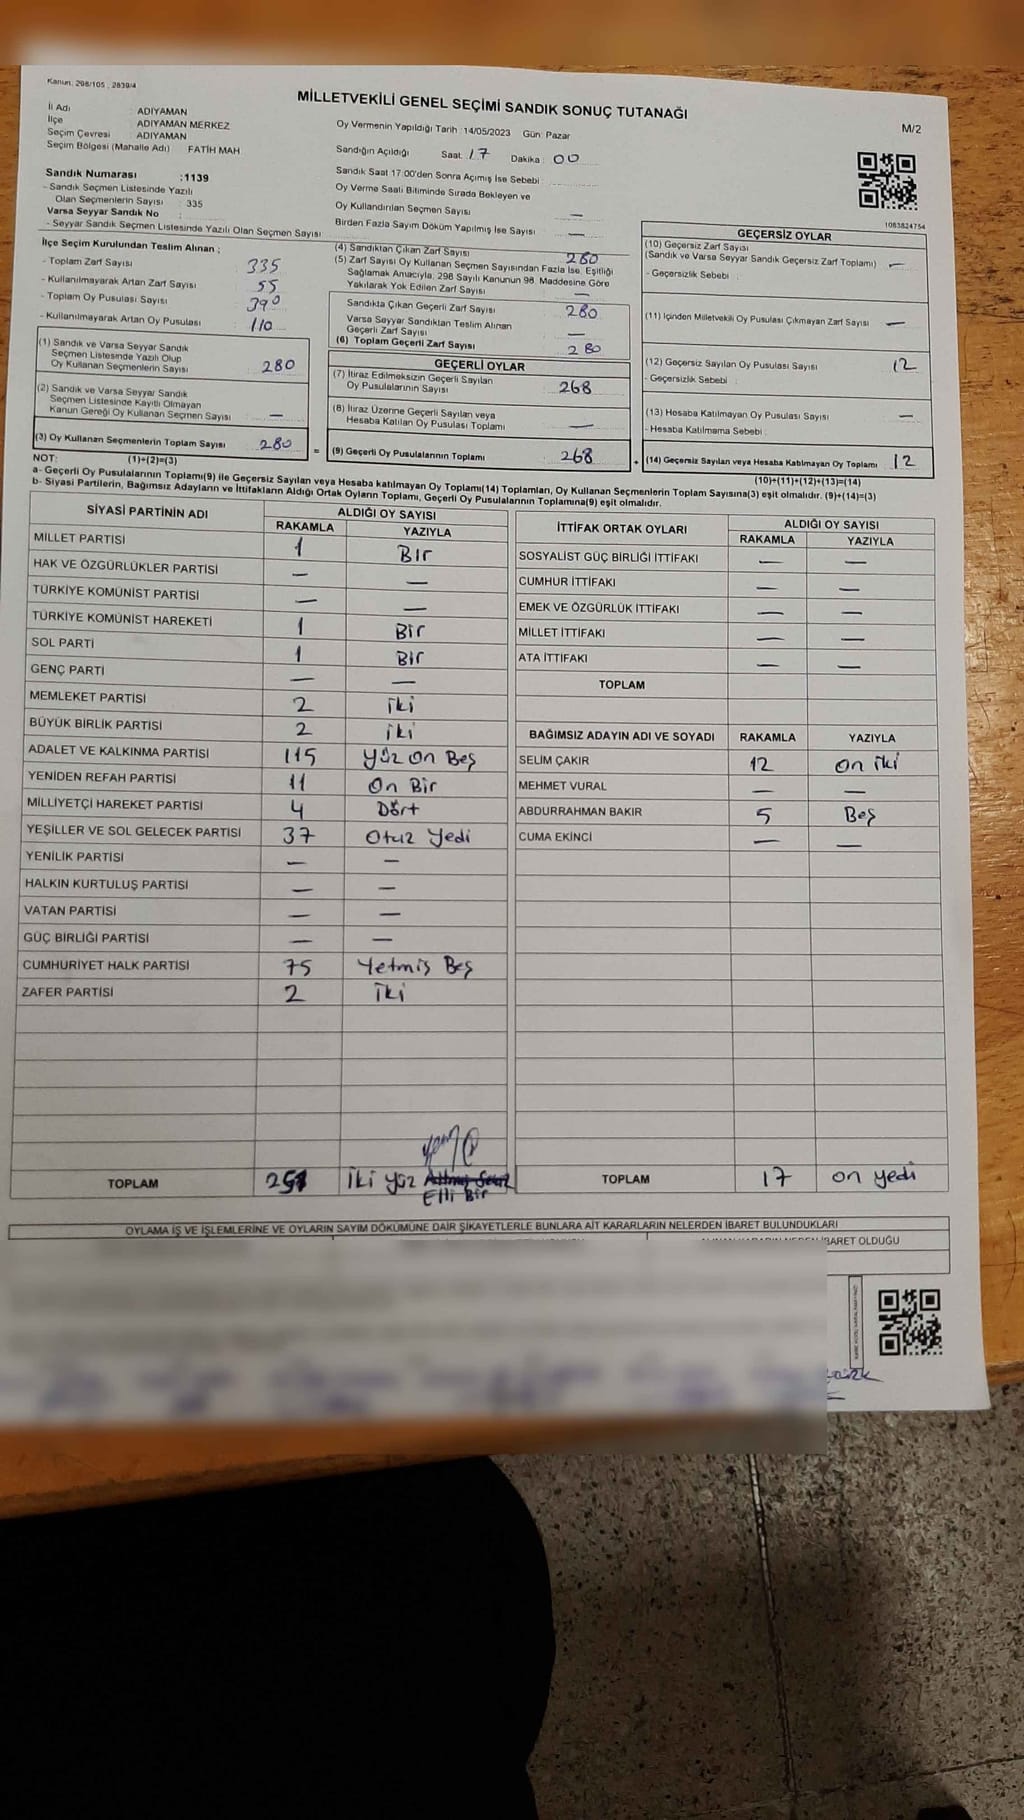 Kanun: 298/105 , 2839/4
MİLLETVEKİLİ GENEL SEÇİMİ SANDIK SONUÇ TUTANAĞI
M/2
İl Adı : ADIYAMAN
İlçe : ADIYAMAN MERKEZ
Seçim Çevresi : ADIYAMAN
Seçim Bölgesi (Mahalle Adı) FATİH MAH
Sandık Numarası :1139
- Sandık Seçmen Listesinde Yazılı
Olan Seçmenlerin Sayısı : 335
Varsa Seyyar Sandık No :
- Seyyar Sandık Seçmen Listesinde Yazılı Olan Seçmen Sayısı :
Oy Vermenin Yapıldığı Tarih :14/05/2023 Gün: Pazar
Sandığın Açıldığı Saat: 17 Dakika: 00
Sandık Saat 17:00'den Sonra Açımış İse Sebebi :
Oy Verme Saati Bitiminde Sırada Bekleyen ve
Oy Kullandırılan Seçmen Sayısı —
Birden Fazla Sayım Döküm Yapılmış İse Sayısı —
1063824754
İlçe Seçim Kurulundan Teslim Alınan ;
- Toplam Zarf Sayısı 335
- Kullanılmayarak Artan Zarf Sayısı 55
- Toplam Oy Pusulası Sayısı 390
- Kullanılmayarak Artan Oy Pusulası 110
(1) Sandık ve Varsa Seyyar Sandık
Seçmen Listesinde Yazılı Olup
Oy Kullanan Seçmenlerin Sayısı 280
(2) Sandık ve Varsa Seyyar Sandık
Seçmen Listesinde Kayıtlı Olmayan
Kanun Gereği Oy Kullanan Seçmen Sayısı —
(3) Oy Kullanan Seçmenlerin Toplam Sayısı 280
(4) Sandıktan Çıkan Zarf Sayısı 280
(5) Zarf Sayısı Oy Kullanan Seçmen Sayısından Fazla İse, Eşitliği
Sağlamak Amacıyla, 298 Sayılı Kanunun 98. Maddesine Göre
Yakılarak Yok Edilen Zarf Sayısı —
Sandıkta Çıkan Geçerli Zarf Sayısı 280
Varsa Seyyar Sandıktan Teslim Alınan
Geçerli Zarf Sayısı —
(6) Toplam Geçerli Zarf Sayısı 280
GEÇERLİ OYLAR
(7) İtiraz Edilmeksizin Geçerli Sayılan
Oy Pusulalarının Sayısı 268
(8) İtiraz Üzerine Geçerli Sayılan veya
Hesaba Katılan Oy Pusulası Toplamı —
= (9) Geçerli Oy Pusulalarının Toplamı 268
GEÇERSİZ OYLAR
(10) Geçersiz Zarf Sayısı
(Sandık ve Varsa Seyyar Sandık Geçersiz Zarf Toplamı) —
- Geçersizlik Sebebi :
(11) İçinden Milletvekili Oy Pusulası Çıkmayan Zarf Sayısı —
(12) Geçersiz Sayılan Oy Pusulası Sayısı 12
- Geçersizlik Sebebi :
(13) Hesaba Katılmayan Oy Pusulası Sayısı —
- Hesaba Katılmama Sebebi :
+ (14) Geçersiz Sayılan veya Hesaba Katılmayan Oy Toplamı 12
NOT: (1)+(2)=(3)
(10)+(11)+(12)+(13)=(14)
a- Geçerli Oy Pusulalarının Toplamı(9) ile Geçersiz Sayılan veya Hesaba katılmayan Oy Toplamı(14) Toplamları, Oy Kullanan Seçmenlerin Toplam Sayısına(3) eşit olmalıdır. (9)+(14)=(3)
b- Siyasi Partilerin, Bağımsız Adayların ve İttifakların Aldığı Ortak Oyların Toplamı, Geçerli Oy Pusulalarının Toplamına(9) eşit olmalıdır.
SİYASİ PARTİNİN ADI ALDIĞI OY SAYISI
RAKAMLA YAZIYLA
MİLLET PARTİSİ 1 Bir
HAK VE ÖZGÜRLÜKLER PARTİSİ — —
TÜRKİYE KOMÜNİST PARTİSİ — —
TÜRKİYE KOMÜNİST HAREKETİ 1 Bir
SOL PARTİ 1 Bir
GENÇ PARTİ — —
MEMLEKET PARTİSİ 2 iki
BÜYÜK BİRLİK PARTİSİ 2 iki
ADALET VE KALKINMA PARTİSİ 115 Yüz On Beş
YENİDEN REFAH PARTİSİ 11 On Bir
MİLLİYETÇİ HAREKET PARTİSİ 4 Dört
YEŞİLLER VE SOL GELECEK PARTİSİ 37 Otuz Yedi
YENİLİK PARTİSİ — —
HALKIN KURTULUŞ PARTİSİ — —
VATAN PARTİSİ — —
GÜÇ BİRLİĞİ PARTİSİ — —
CUMHURİYET HALK PARTİSİ 75 Yetmiş Beş
ZAFER PARTİSİ 2 İki
TOPLAM 251 İki Yüz
Elli Bir
İTTİFAK ORTAK OYLARI ALDIĞI OY SAYISI
RAKAMLA YAZIYLA
SOSYALİST GÜÇ BİRLİĞİ İTTİFAKI — —
CUMHUR İTTİFAKI — —
EMEK VE ÖZGÜRLÜK İTTİFAKI — —
MİLLET İTTİFAKI — —
ATA İTTİFAKI — —
TOPLAM
BAĞIMSIZ ADAYIN ADI VE SOYADI RAKAMLA YAZIYLA
SELİM ÇAKIR 12 On iki
MEHMET VURAL — —
ABDURRAHMAN BAKIR 5 Beş
CUMA EKİNCİ — —
TOPLAM 17 On yedi
OYLAMA İŞ VE İŞLEMLERİNE VE OYLARIN SAYIM DÖKÜMÜNE DAİR ŞİKAYETLERLE BUNLARA AİT KARARLARIN NELERDEN İBARET BULUNDUKLARI
İBARET OLDUĞU